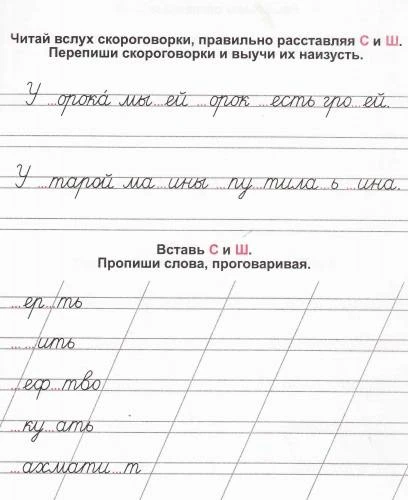 Читай вслух скороговорки, правильно расставляя С и Ш.
Перепиши скороговорки и выучи их наизусть.
У ...орока́ мы...ей ...орок ...есть гро...ей.
У ...тарой ма...ины ...пу...тила...ь ...ина.
Вставь С и Ш.
Пропиши слова, проговаривая.
...ер...ть
... ...ить
...еф...тво
...ку...ать
...ахмати...т